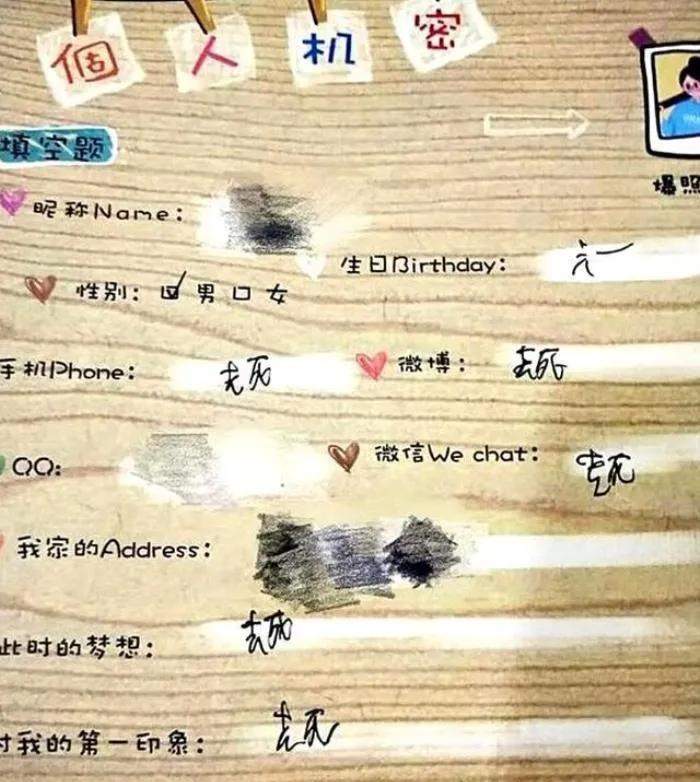 個人机密
填空题
爆照
昵称Name：
生日Birthday：
性别： 口 男 口 女
手机Phone： 去死
微博： 去死
QQ：
微信We chat： 去死
我家的Address：
此时的梦想： 去死
对我的第一印象： 去死